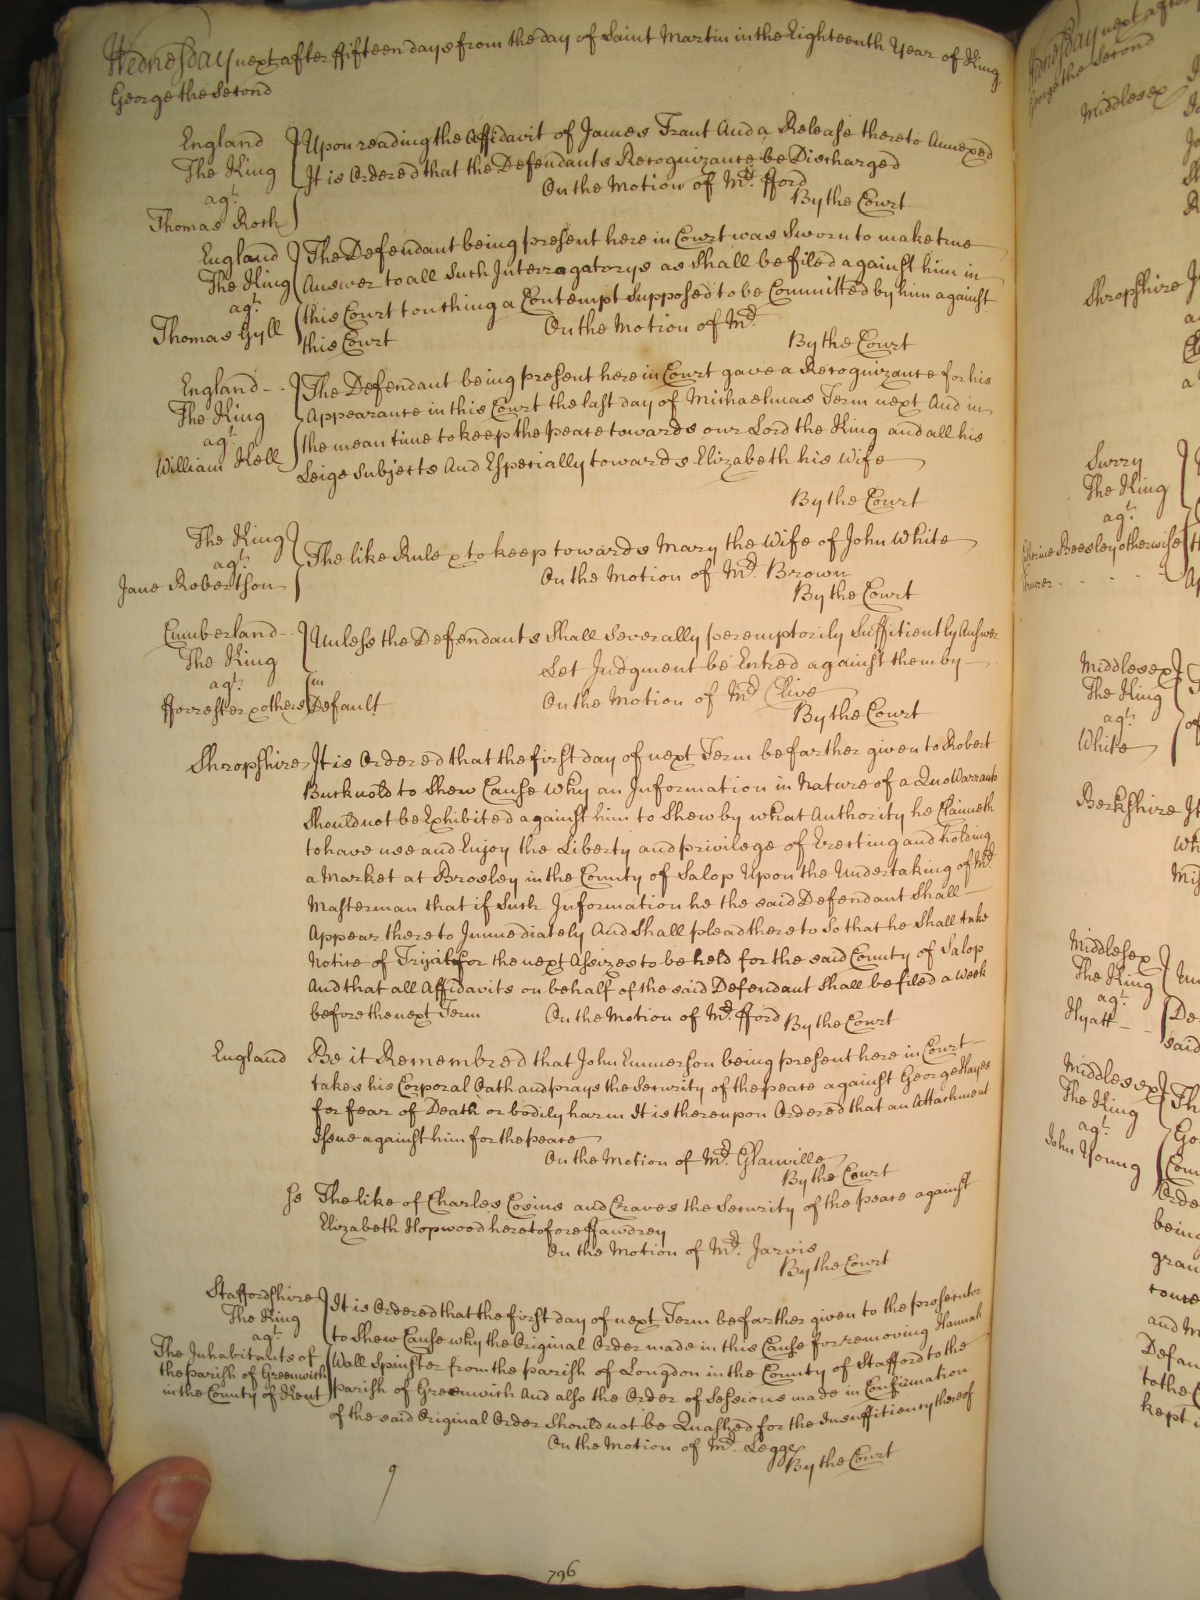 Wednesday next after ffifteen days from the day of Saint Martin in the Eighteenth Year of King
George the Second
England
The King
agt.
Thomas Roth
Upon reading the Affidavit of James Trant And a Release thereto Annexed
It is Ordered that the Defendants Recognizance be Discharged
On the Motion of Mr. fford
By the Court
England
The King
agt.
Thomas Gyll
The Defendant being present here in Court was Sworn to make true
Answer to all Such Interrogatorys as Shall be filed against him in
this Court touching a Contempt Supposed to be Committed by him against
this Court
On the Motion of Mr.
By the Court
England
The King
agt.
William Kell
The Defendant being present here in Court gave a Recognizance for his
Appearance in this Court the last day of Michaelmas Term next And in
the mean time to keep the peace towards our Lord the King and all his
Leige Subjects And Especially towards Elizabeth his Wife
By the Court
The King
agt.
Jane Robertson
The like Rule x to keep towards Mary the Wife of John White
On the Motion of Mr. Brown
By the Court
Cumberland
The King
agt.
fforrester x others
Unless the Defendants Shall Severally peremptorily Sufficiently Answer
in
Let Judgment be Entred against them by
Default
On the Motion of Mr. Clive
By the Court
Shropshire
It is Ordered that the first day of next Term be farther given to Robert
Bucknold to Shew Cause Why an Information in Nature of a Quo Warranto
Should not be Exhibited against him to Shew by what Authority he Claimeth
to have use and Enjoy the Liberty and privilege of Erecting and holding
a Market at Broseley in the County of Salop Upon the Undertaking of Mr.
Masterman that if Such Information he the said Defendant Shall
Appear thereto Immediately And Shall plead thereto So that he Shall take
Notice of Tryal for the next Assizes to be held for the said County of Salop
And that all Affidavits on behalf of the said Defendant Shall be filed a Week
before the next Term
On the Motion of Mr. fford
By the Court
England
Be it Remembred that John Emmerson being present here in Court
takes his Corporal Oath and prays the Security of the peace against George Hayes
for fear of Death or bodily harm It is thereupon Ordered that an Attachment
Issue against him for the peace
On the Motion of Mr. Glanville
By the Court
ss The like of Charles Cosins and Craves the Security of the peace against
Elizabeth Hopwood heretofore ffawdrey
On the Motion of Mr. Jarvis
By the Court
Staffordshire
The King
agt.
The Inhabitants of
the parish of Greenwich
in the County of Kent
It is Ordered that the first day of next Term be farther given to the prosecutor
to Shew Cause why the Original Order made in this Cause for removing Hannah
Wall Spinster from the parish of Longdon in the County of Stafford to the
parish of Greenwich And also the Order of Sessions made in Confirmation
of the said Original Order Should not be Quashed for the Insufficiency thereof
On the Motion of Mr. Legge
By the Court
9
796
Middlesex
Shropshire
Surry
The King
agt.
Beesley otherwise
Middlesex
The King
agt.
White
Berkshire
Middlesex
The King
agt.
Hyatt
said
Middlesex
The King
agt.
John Young
being
tothe
kept